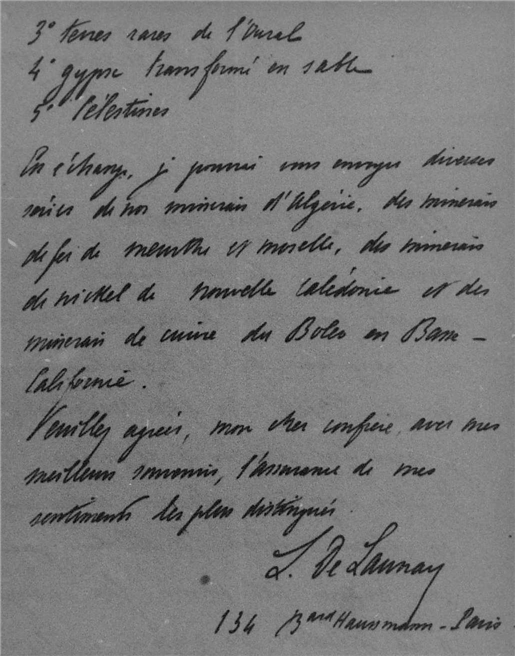 3° terres rares de l'Oural
4° gypse transformé en sable
5° Célestines
En échange, je pourrai vous envoyer diverses
séries de nos minerais d'Algérie, des minerais
de fer de meurthe et moselle, des minerais
de nickel de nouvelle Calédonie et des
minerais de cuivre du Boleo en Basse-
Californie.
Veuillez agréer, mon cher confrère, avec mes
meilleurs souvenirs, l'assurance de mes
sentiments les plus distingués.
L. De Launay
134 Bard Haussmann - Paris